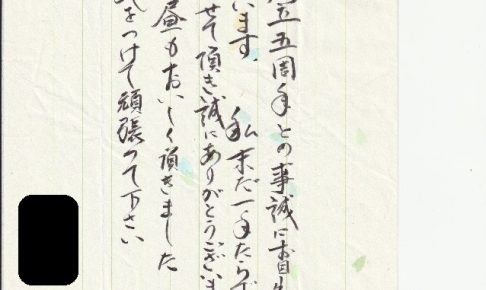 立五周年との事誠にお目
います。 私未だ一年たらず
せて頂き誠にありがとうございま
昼もおいしく頂きました
気をつけて頑張って下さい